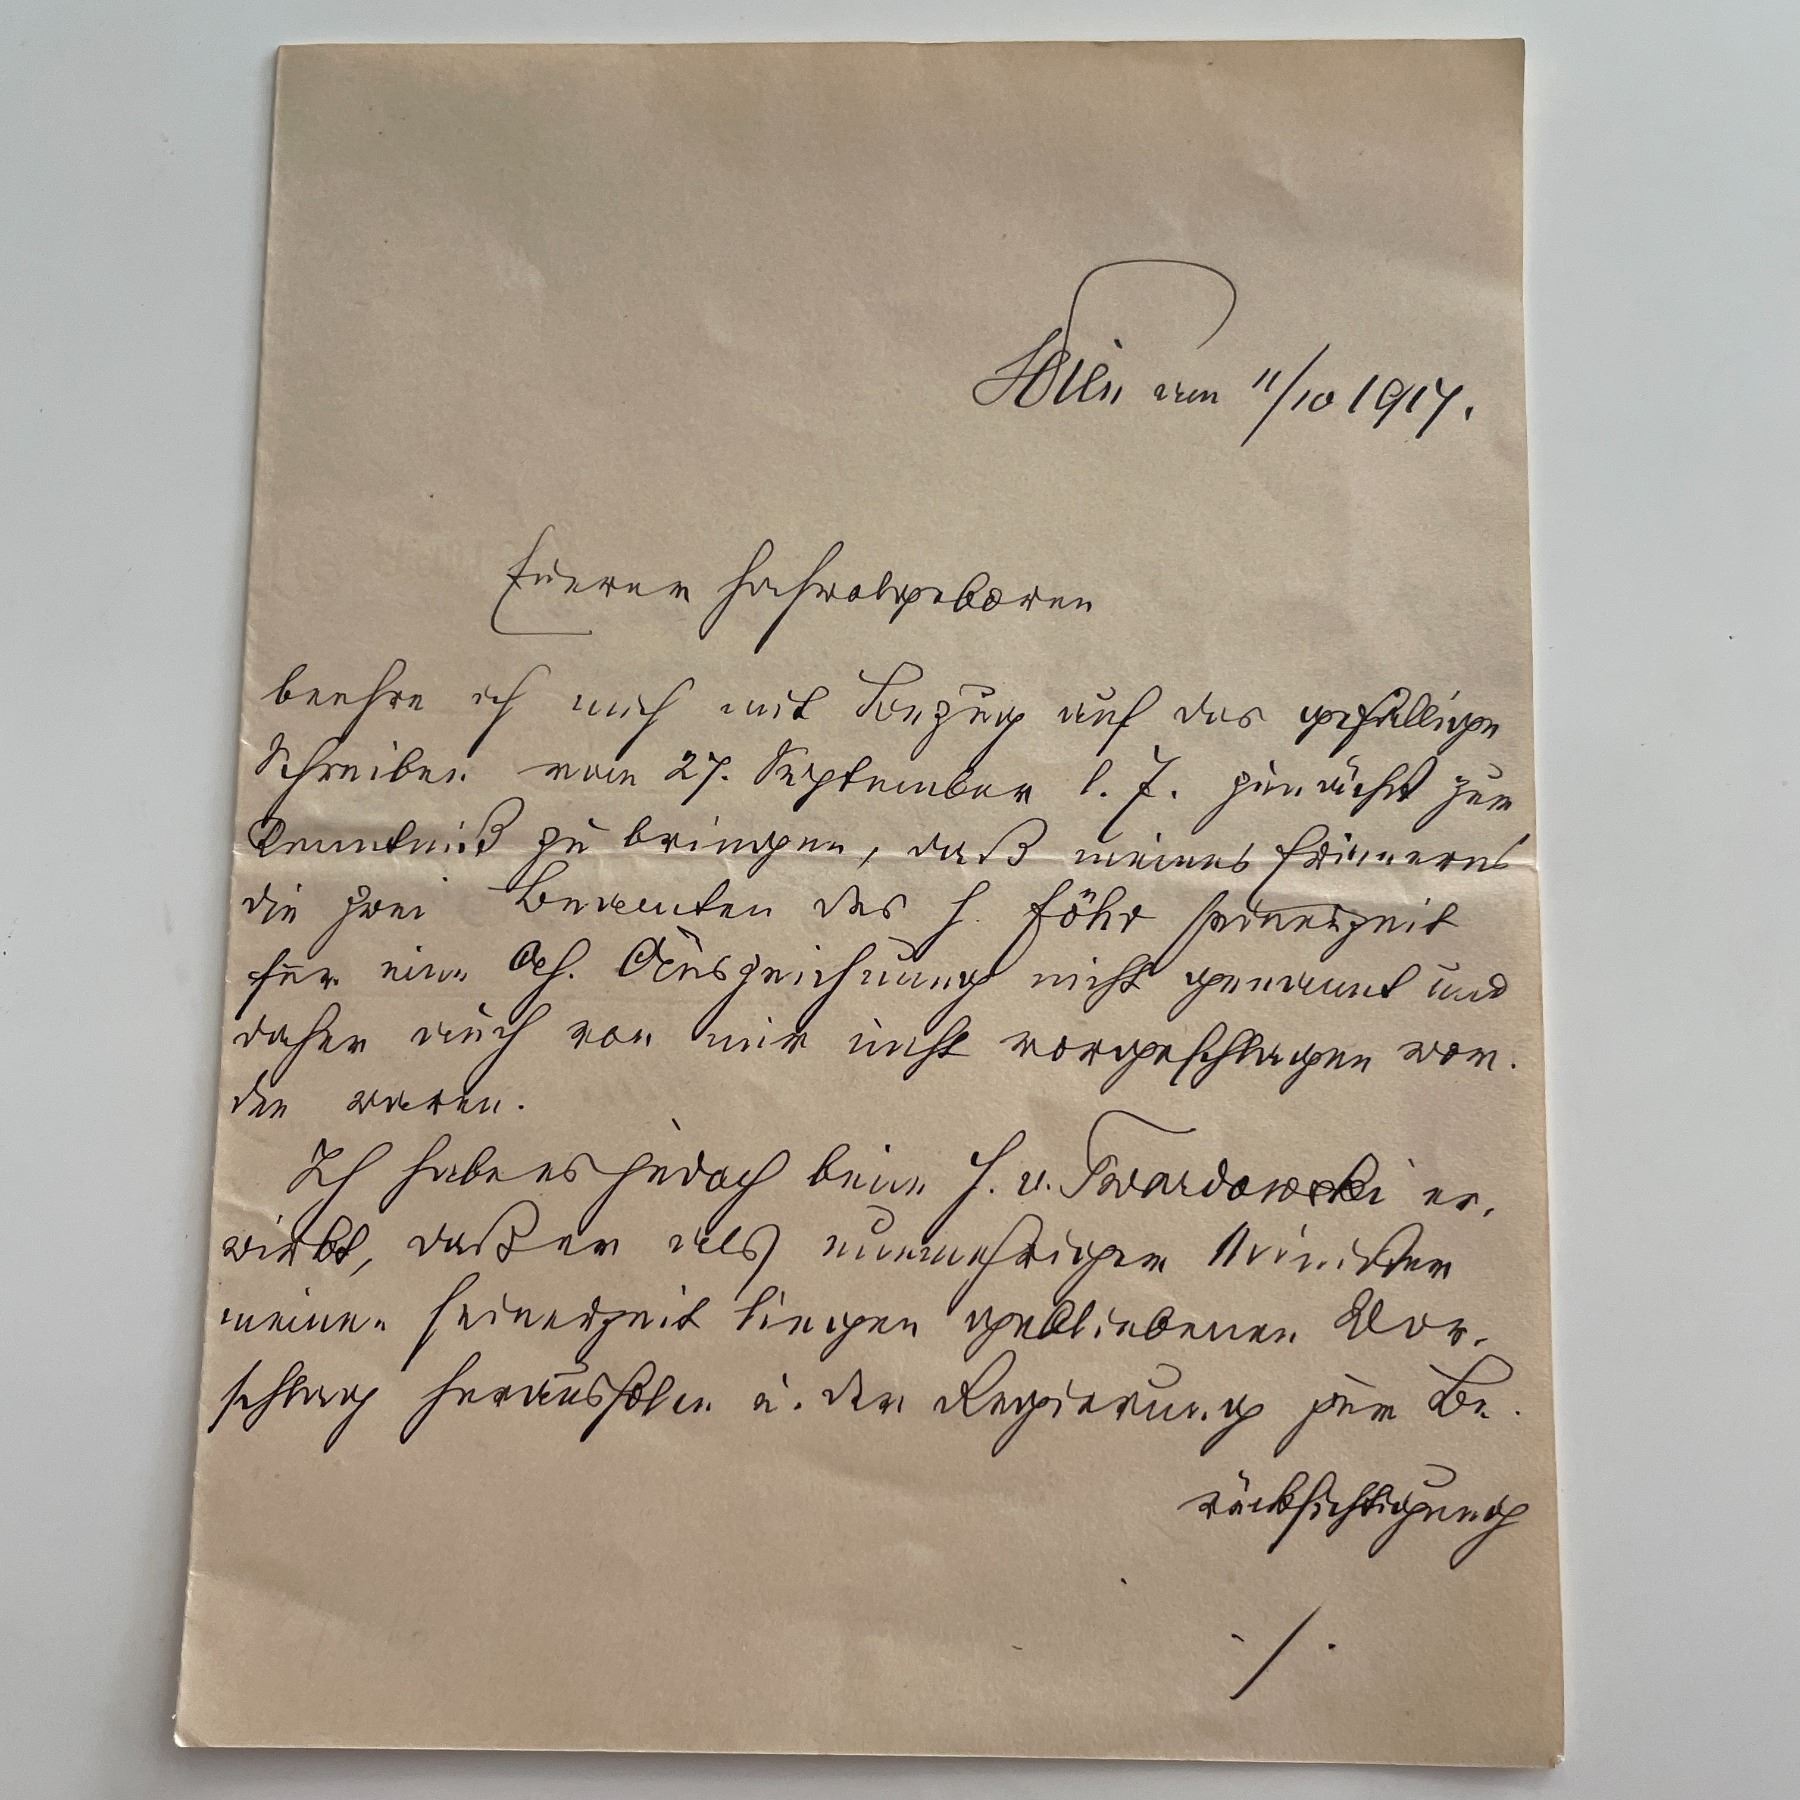 Wien am 11/10 1917.
Euerer Hochwolgeboren
beehre ich mich mit Bezug auf das gefällige
Schreiben vom 27. September l. J. zunächst zur
Kenntniß zu bringen, daß meines Erinnerns
die zwei Beamten des H. Föhr seinerzeit
für eine Ah. Auszeichnung nicht genannt und
daher auch von mir nicht vorgeschlagen wor.
den waren.
Ich habe es jedoch beim H. v. Twardowski er.
wirkt, daß er als nunmehriger Minister
meinen seinerzeit liegen gebliebenen Vor.
schlag heraushole u. der Regierung zur Be.
rücksichtigung
./.